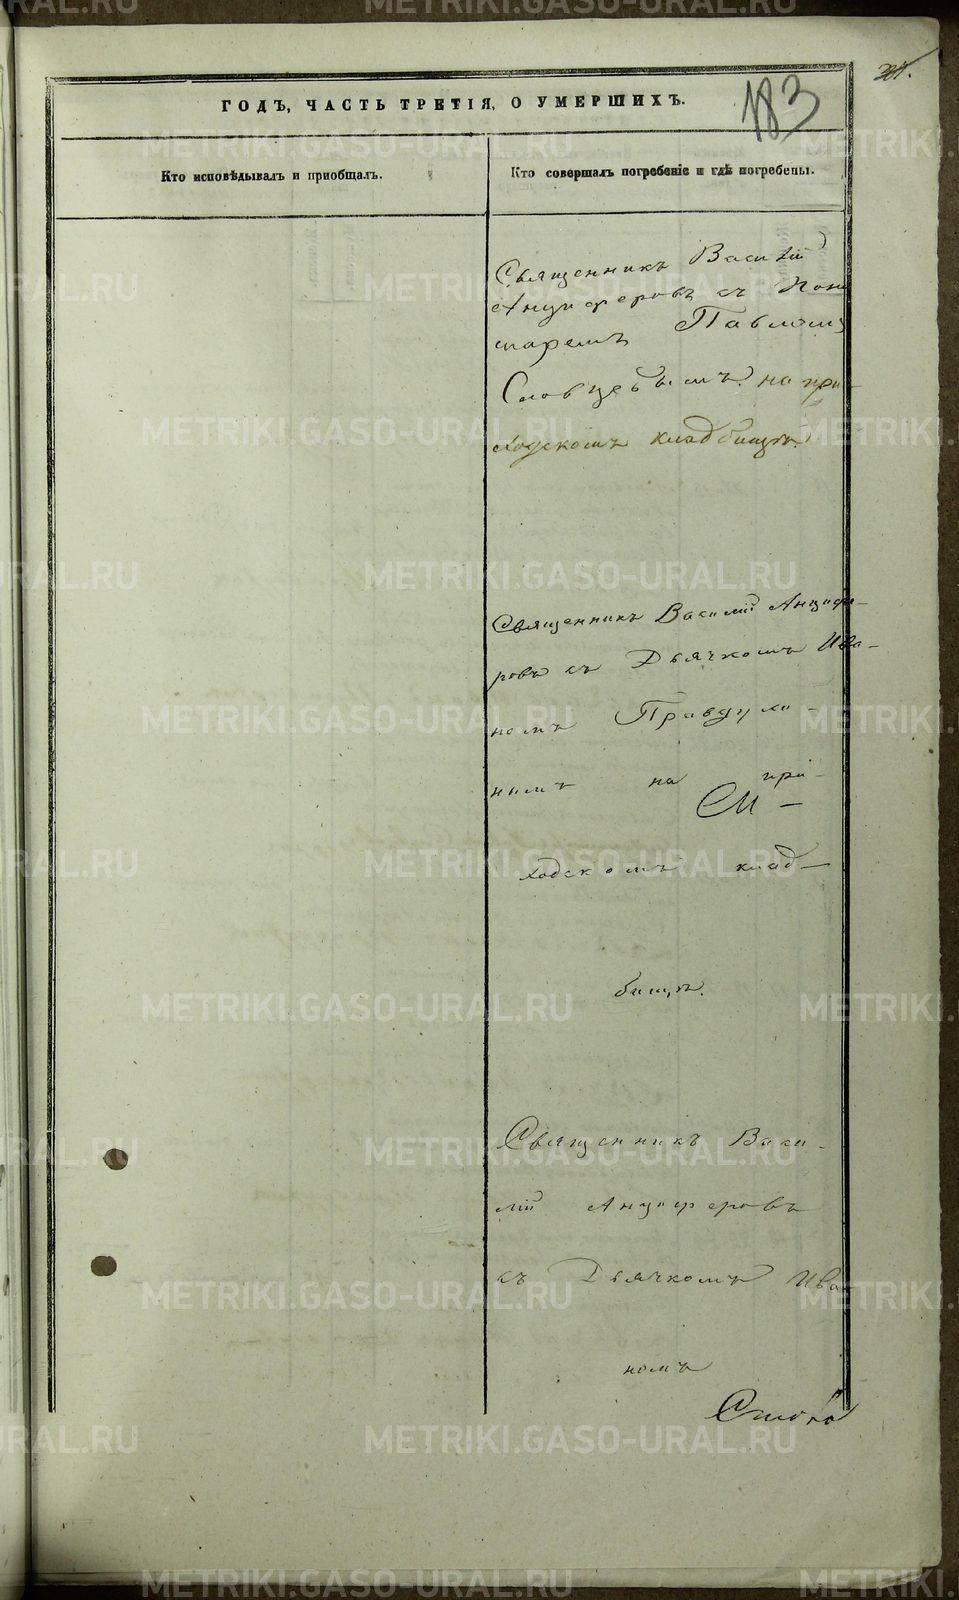 183
ГОДЪ, ЧАСТЬ ТРЕТІЯ, О УМЕРШИХЪ.
Кто исповѣдывалъ и пріобщалъ.
Кто совершалъ погребеніе и гдѣ погребены.
Священникъ Василій
Анциферовъ съ Поно
маремъ Павломъ
Словцевымъ на при-
ходскомъ кладбищѣ.
Священникъ Василій Анцифе-
ровъ съ Дьячкомъ Ива-
номъ Правдухи-
нымъ на при-
ходскомъ клад-
бищѣ.
Священникъ Васи-
лій Анциферовъ
съ Дьячкомъ Ива
номъ
METRIKI.GASO-URAL.RU